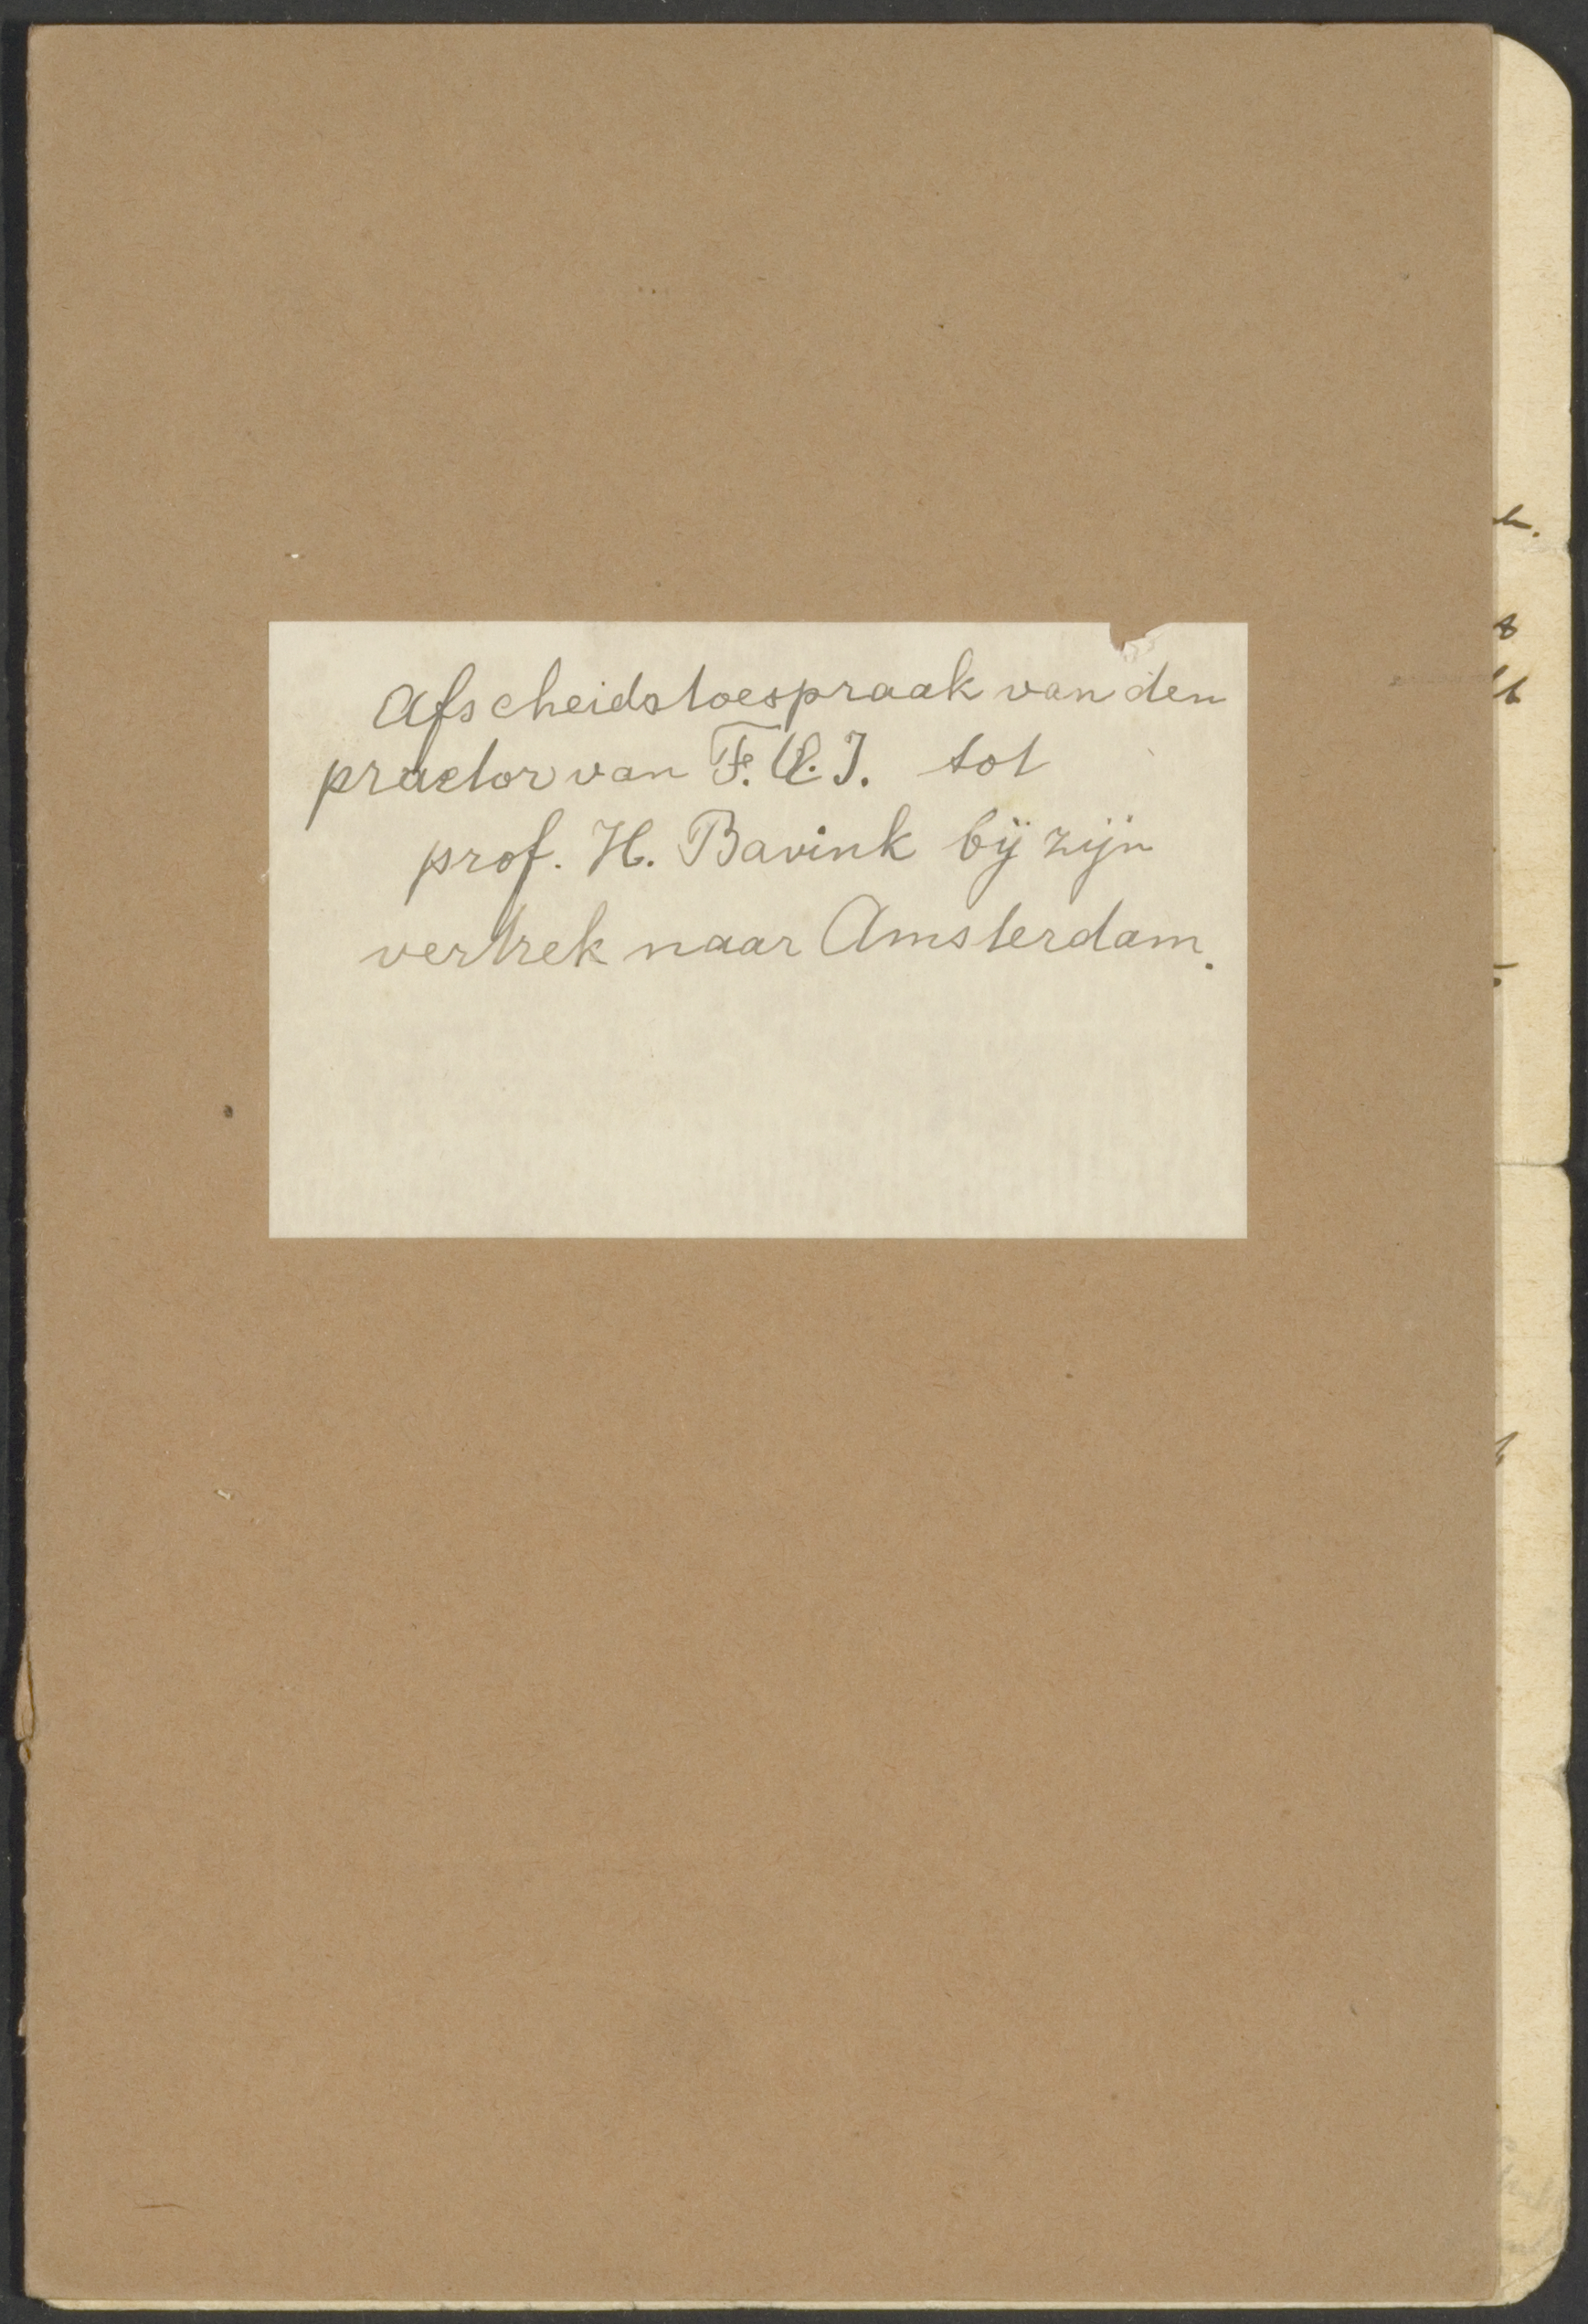 Afscheidstoespraak van den
praetor van F.Q.I. tot
prof. H. Bavink bij zijn
vertrek naar Amsterdam.